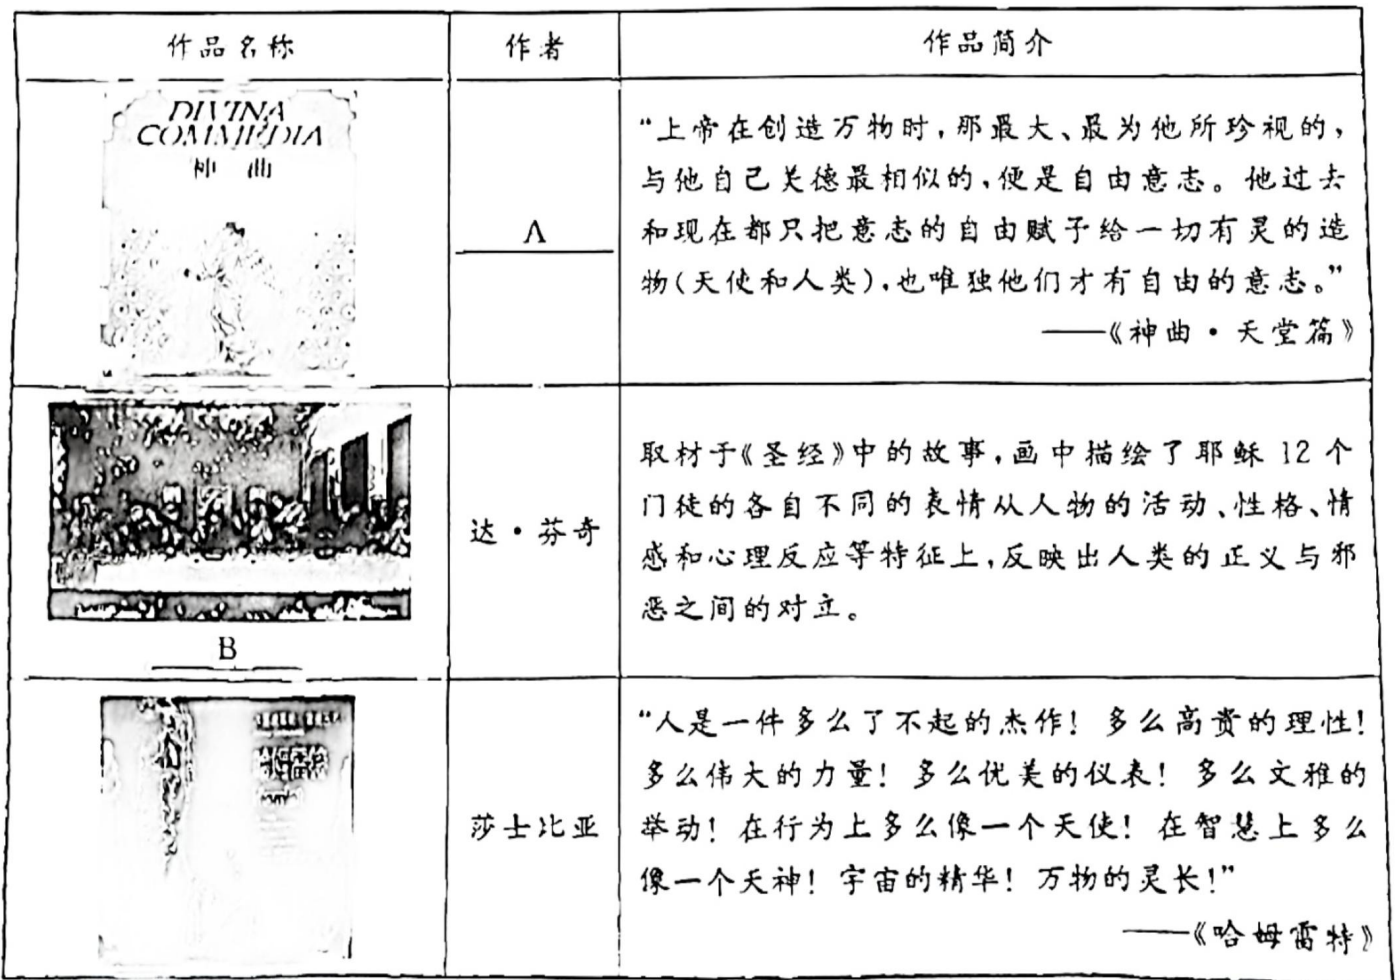 作品名称
作者
作品简介
DIVINA
COMMEDIA
神 曲
A
“上帝在创造万物时，那最大、最为他所珍视的，
与他自己美德最相似的，便是自由意志。他过去
和现在都只把意志的自由赋予给一切有灵的造
物（天使和人类），也唯独他们才有自由的意志。”
——《神曲·天堂篇》
B
达·芬奇
取材于《圣经》中的故事，画中描绘了耶稣12个
门徒的各自不同的表情从人物的活动、性格、情
感和心理反应等特征上，反映出人类的正义与邪
恶之间的对立。
莎士比亚
“人是一件多么了不起的杰作！多么高贵的理性！
多么伟大的力量！多么优美的仪表！多么文雅的
举动！在行为上多么像一个天使！在智慧上多么
像一个天神！宇宙的精华！万物的灵长！”
——《哈姆雷特》